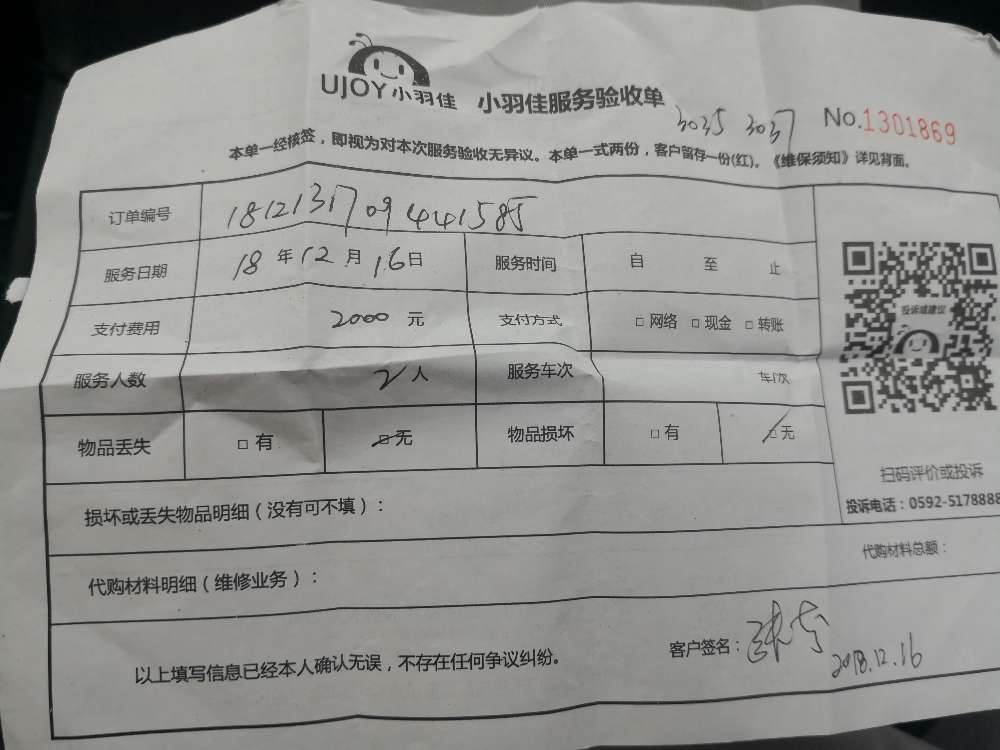 UJOY小羽佳 小羽佳服务验收单
3035 3037 No.1301869
本单一经核签，即视为对本次服务验收无异议。本单一式两份，客户留存一份(红)。《维保须知》详见背面。
订单编号 1812131709441585
服务日期 18年12月16日 服务时间 自 至 止
支付费用 2000元 支付方式 □网络 □现金 □转账
服务人数 2人 服务车次 车/次
物品丢失 □有 □无 物品损坏 □有 □无
投诉或建议
扫码评价或投诉
投诉电话：0592-5178888
损坏或丢失物品明细（没有可不填）：
代购材料明细（维修业务）： 代购材料总额：
以上填写信息已经本人确认无误，不存在任何争议纠纷。 客户签名：
2018.12.16